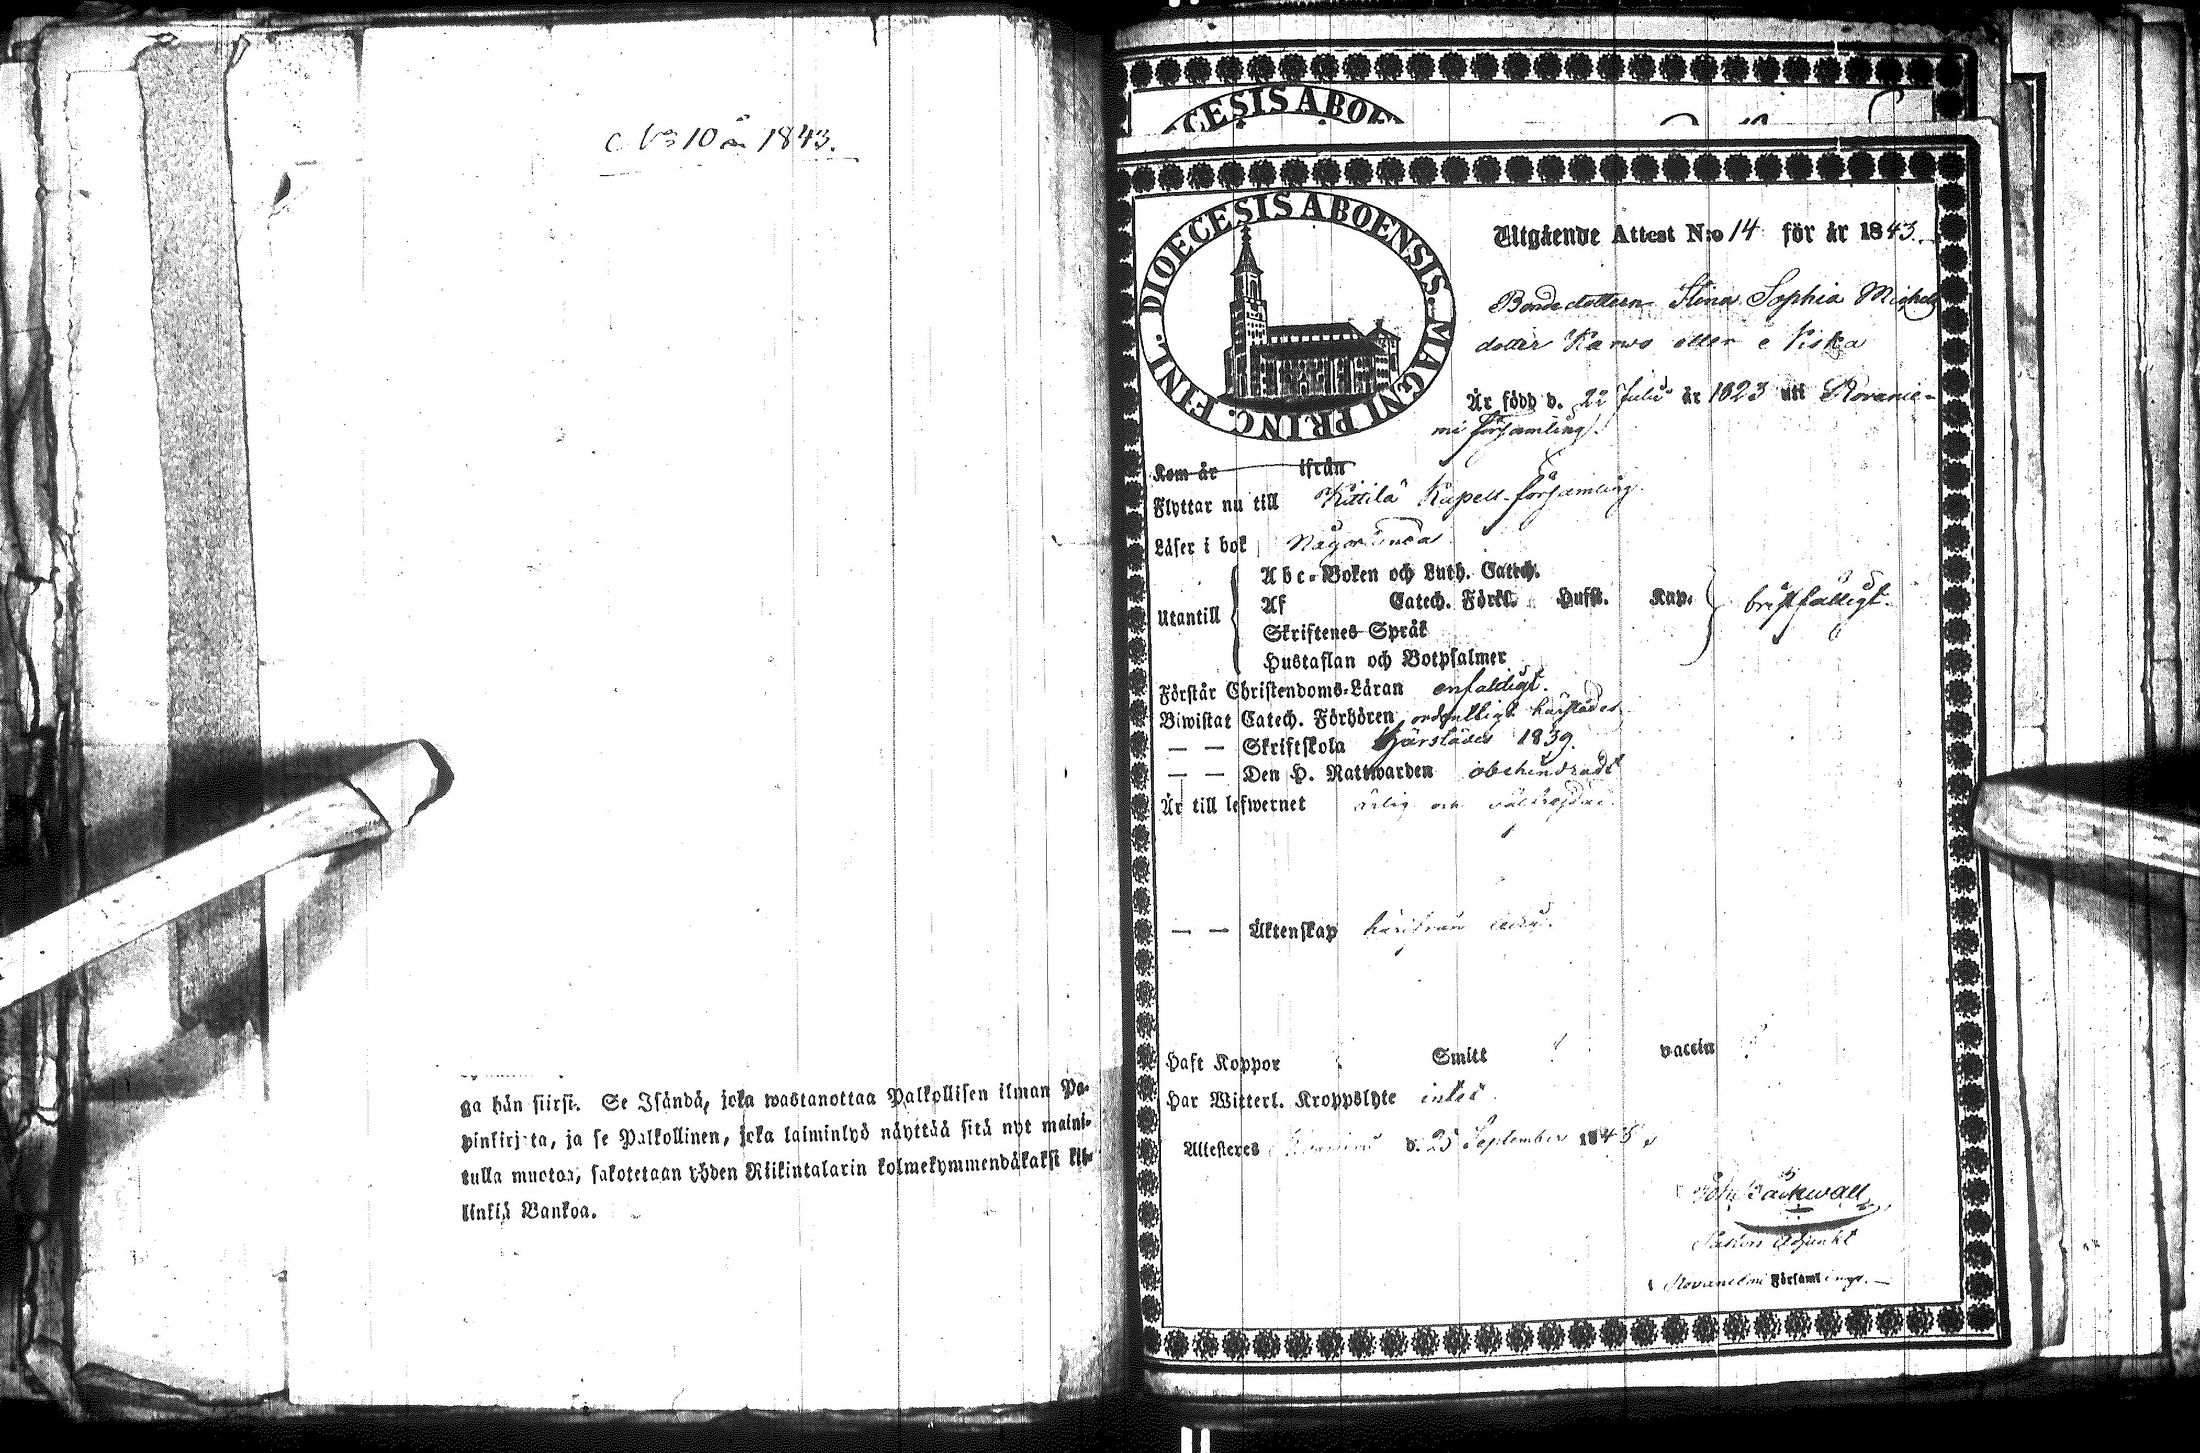 N:o 10 år 1843.
ga hän siirsi. Se Isändä, joka wastanottaa Palkollisen ilman Pa-
pinkirjata, ja se Palkollinen, joka laiminlyö näyttää sitä nyt maini-
tulla muotoa, sakotetaan yhden Riikintalarin kolmekymmendäkaksi kil-
linkiä Bankoa.
CESIS ABOE
DIOECESIS ABOENSIS MAGNI PRINC. FINL.
Utgående Attest N:o 14 för år 1843.
Bondedottern Stina Sophia Michels
dotter Karvo eller
Är född d. 22 Julii år 1823 uti Rovanie-
mi församling.
Kom år ifrån
Flyttar nu till Kittilä Kapell-församling.
Läser i bok någorlunda
Utantill
Abc-Boken och Luth. Catech.
Af Catech. Förkl. Hufst. Kap. bristfälligt.
Skriftenes Språk
Hustaflan och Botpsalmer
Förstår Christendoms-Läran enfaldigt.
Biwistat Catech. Förhören ordentligt härstädes
— — Skriftskola härstädes 1839.
— — Den H. Nattwarden obehindradt
Är till lefwernet ärlig och
— — Äktenskap härifrån ledig.
Haft Koppor Smitt vaccin
Har Witterl. Kroppslyte intet
Attesteres d. 25 September 1843
Pastors Adjunkt
i Rovaniemi Församlings.